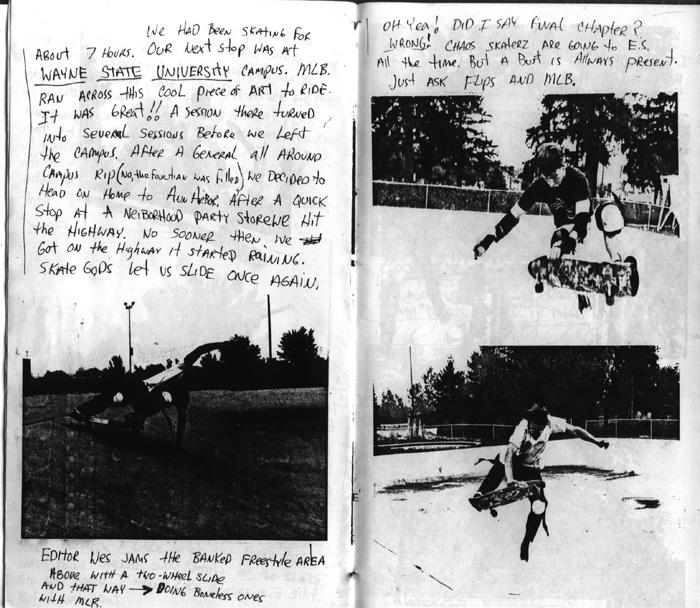 We HAD BEEN SKATING FOR
ABOUT 7 HOURS. OUR NEXT STOP WAS AT
WAYNE STATE UNIVERSITY CAMPUS. MLB.
RAN ACROSS THIS COOL PIECE OF ART TO RIDE.
IT WAS GREAT!! A SESSION THERE TURNED
INTO SEVERAL SESSIONS BEFORE WE LEFT
THE CAMPUS. AFTER A GENERAL ALL AROUND
CAMPUS RIP (NO, THE FOUNTIAN WAS FILLED) WE DECIDED TO
HEAD ON HOME TO ANN ARBOR. AFTER A QUICK
STOP AT A NEIBORHOOD PARTY STORE WE HIT
THE HIGHWAY. NO SOONER THEN WE
GOT ON THE HIGHWAY IT STARTED RAINING.
SKATE GODS LET US SLIDE ONCE AGAIN.
EDITOR WES JAMS THE BANKED FREESTYLE AREA
ABOVE WITH A TWO-WHEEL SLIDE
AND THAT WAY → DOING BONELESS ONES
WITH MLB.
OH YEA! DID I SAY FINAL CHAPTER?
WRONG! CHAOS SKATERZ ARE GOING TO E.S.
ALL THE TIME. BUT A BUST IS ALWAYS PRESENT.
JUST ASK FLIPS AND MLB.